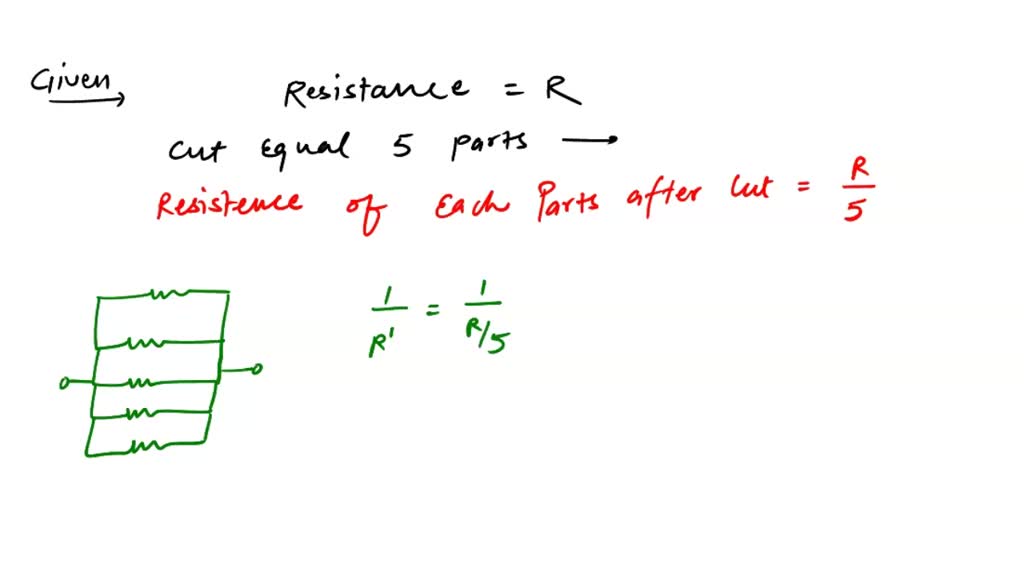 Given
Resistance = R
cut Equal 5 parts →
Resistence of Each Parts after cut = R/5
1/R' = 1/R/5